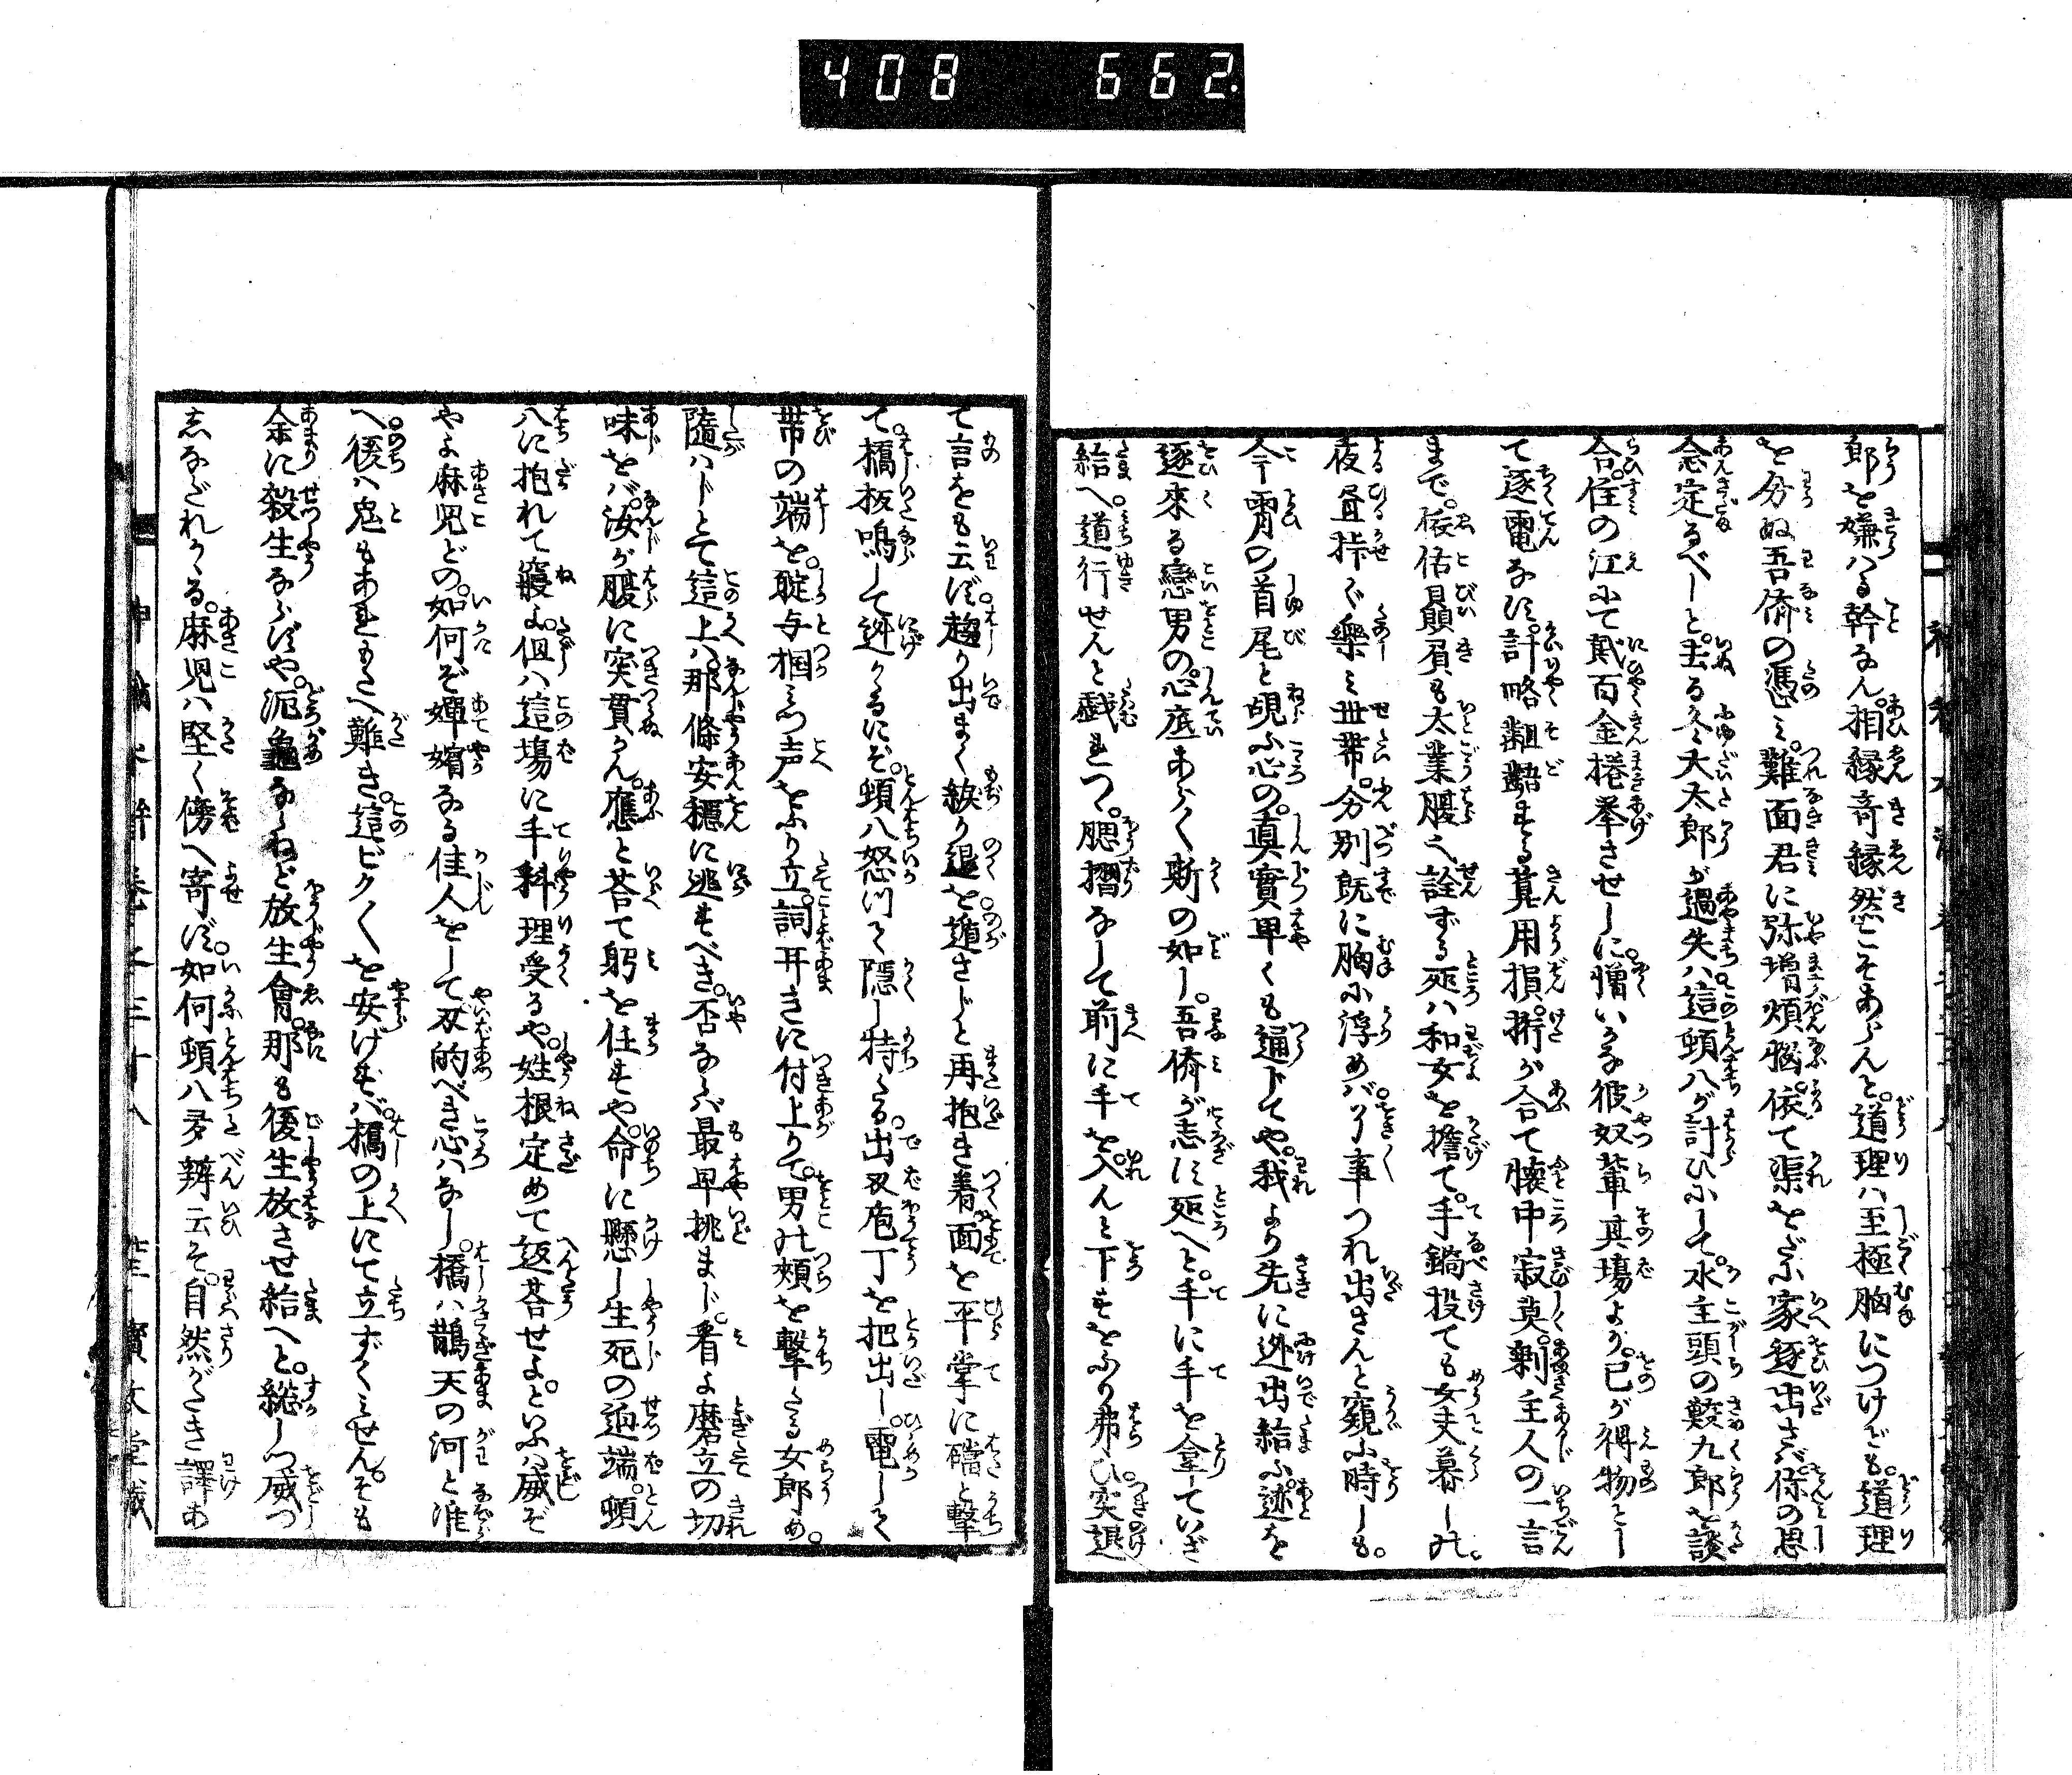 408 662
郎を嫌ハる幹なん。相縁奇縁然こそあらんと。道理ハ至極胸につけども。道理
を分ぬ吾儕の憑ミ。難面君に弥増煩脳。依て渠をバ家逐出さバ。係の思
念定るべしと。去る冬大太郎が過失ハ這頓八が計ひにして。水主頭の鮫九郎を談
合。住の江にて貮百金捲挙させしに。憎いかな彼奴輩其塲より。己が得物とし
て逐電なすに。計略齟齬する算用損。桁が合で懐中寂莫。剰主人の一言
まで。依估贔屓も太業腹之詮ずる処ハ和女を擔て。手鍋投ても女夫暮しれ。
夜昼挊ぐ樂ミ世帯。分別既に胸に浮めバ。了事つれ出さんと窺ふ時しも。
今霄の首尾と覗ふ心の。真實早くも通じてや。我より先に迯出給ふ。迹を
逐來る戀男の。心底あらく斯の如し。吾儕が志す処へと。手に手を拿ていざ
給へ。道行せんと戯れつゝ。腮摺なして前に手を入んと下すをふり弗ひ。突退
て言をも云ず。趨り出まく紾り退を。遁さじと再抱き着。面を平掌に礑と撃
て。橋板鳴して迯かるにぞ。頓八怒つて隠し持たる。出刄庖丁を把出し。電して
帯の端を。聢与掴ミつ声をふり立。詞甘きに付上りて。男れ頬を撃たる女郎め。
隨ハじとて這上ハ。那條安穏に逃すべき。否ならバ最早挑まじ。看よ磨立の切
味をバ。汝が腹に突貫かん。應と荅て躬を任すや。命に懸し生死の迫端。頓
八に抱れて寢よ。但ハ這塲に手料理受るや。姓根定めて返荅せよ。といふハ威ぞ
やよ麻児どの。如何ぞ嬋娟なる佳人をして刄的べき心ハなし。橋ハ鵲天の河と准
へ。後ハ鬼もあれもたへ難き。這ビク〱を安げずバ。橋の上にて立ずくミせん。そも
余に殺生ならずや。泥龜ならねど放生會。那も後生放させ給へと。縋しつ威つ
志なだれかゝる。麻児ハ堅く傍へ寄ず。如何頓八多辨云そ。自然がたき譯あ